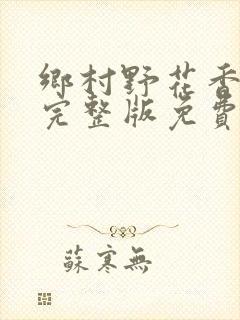 鄉村野花香
完整版免費
蘇寒無